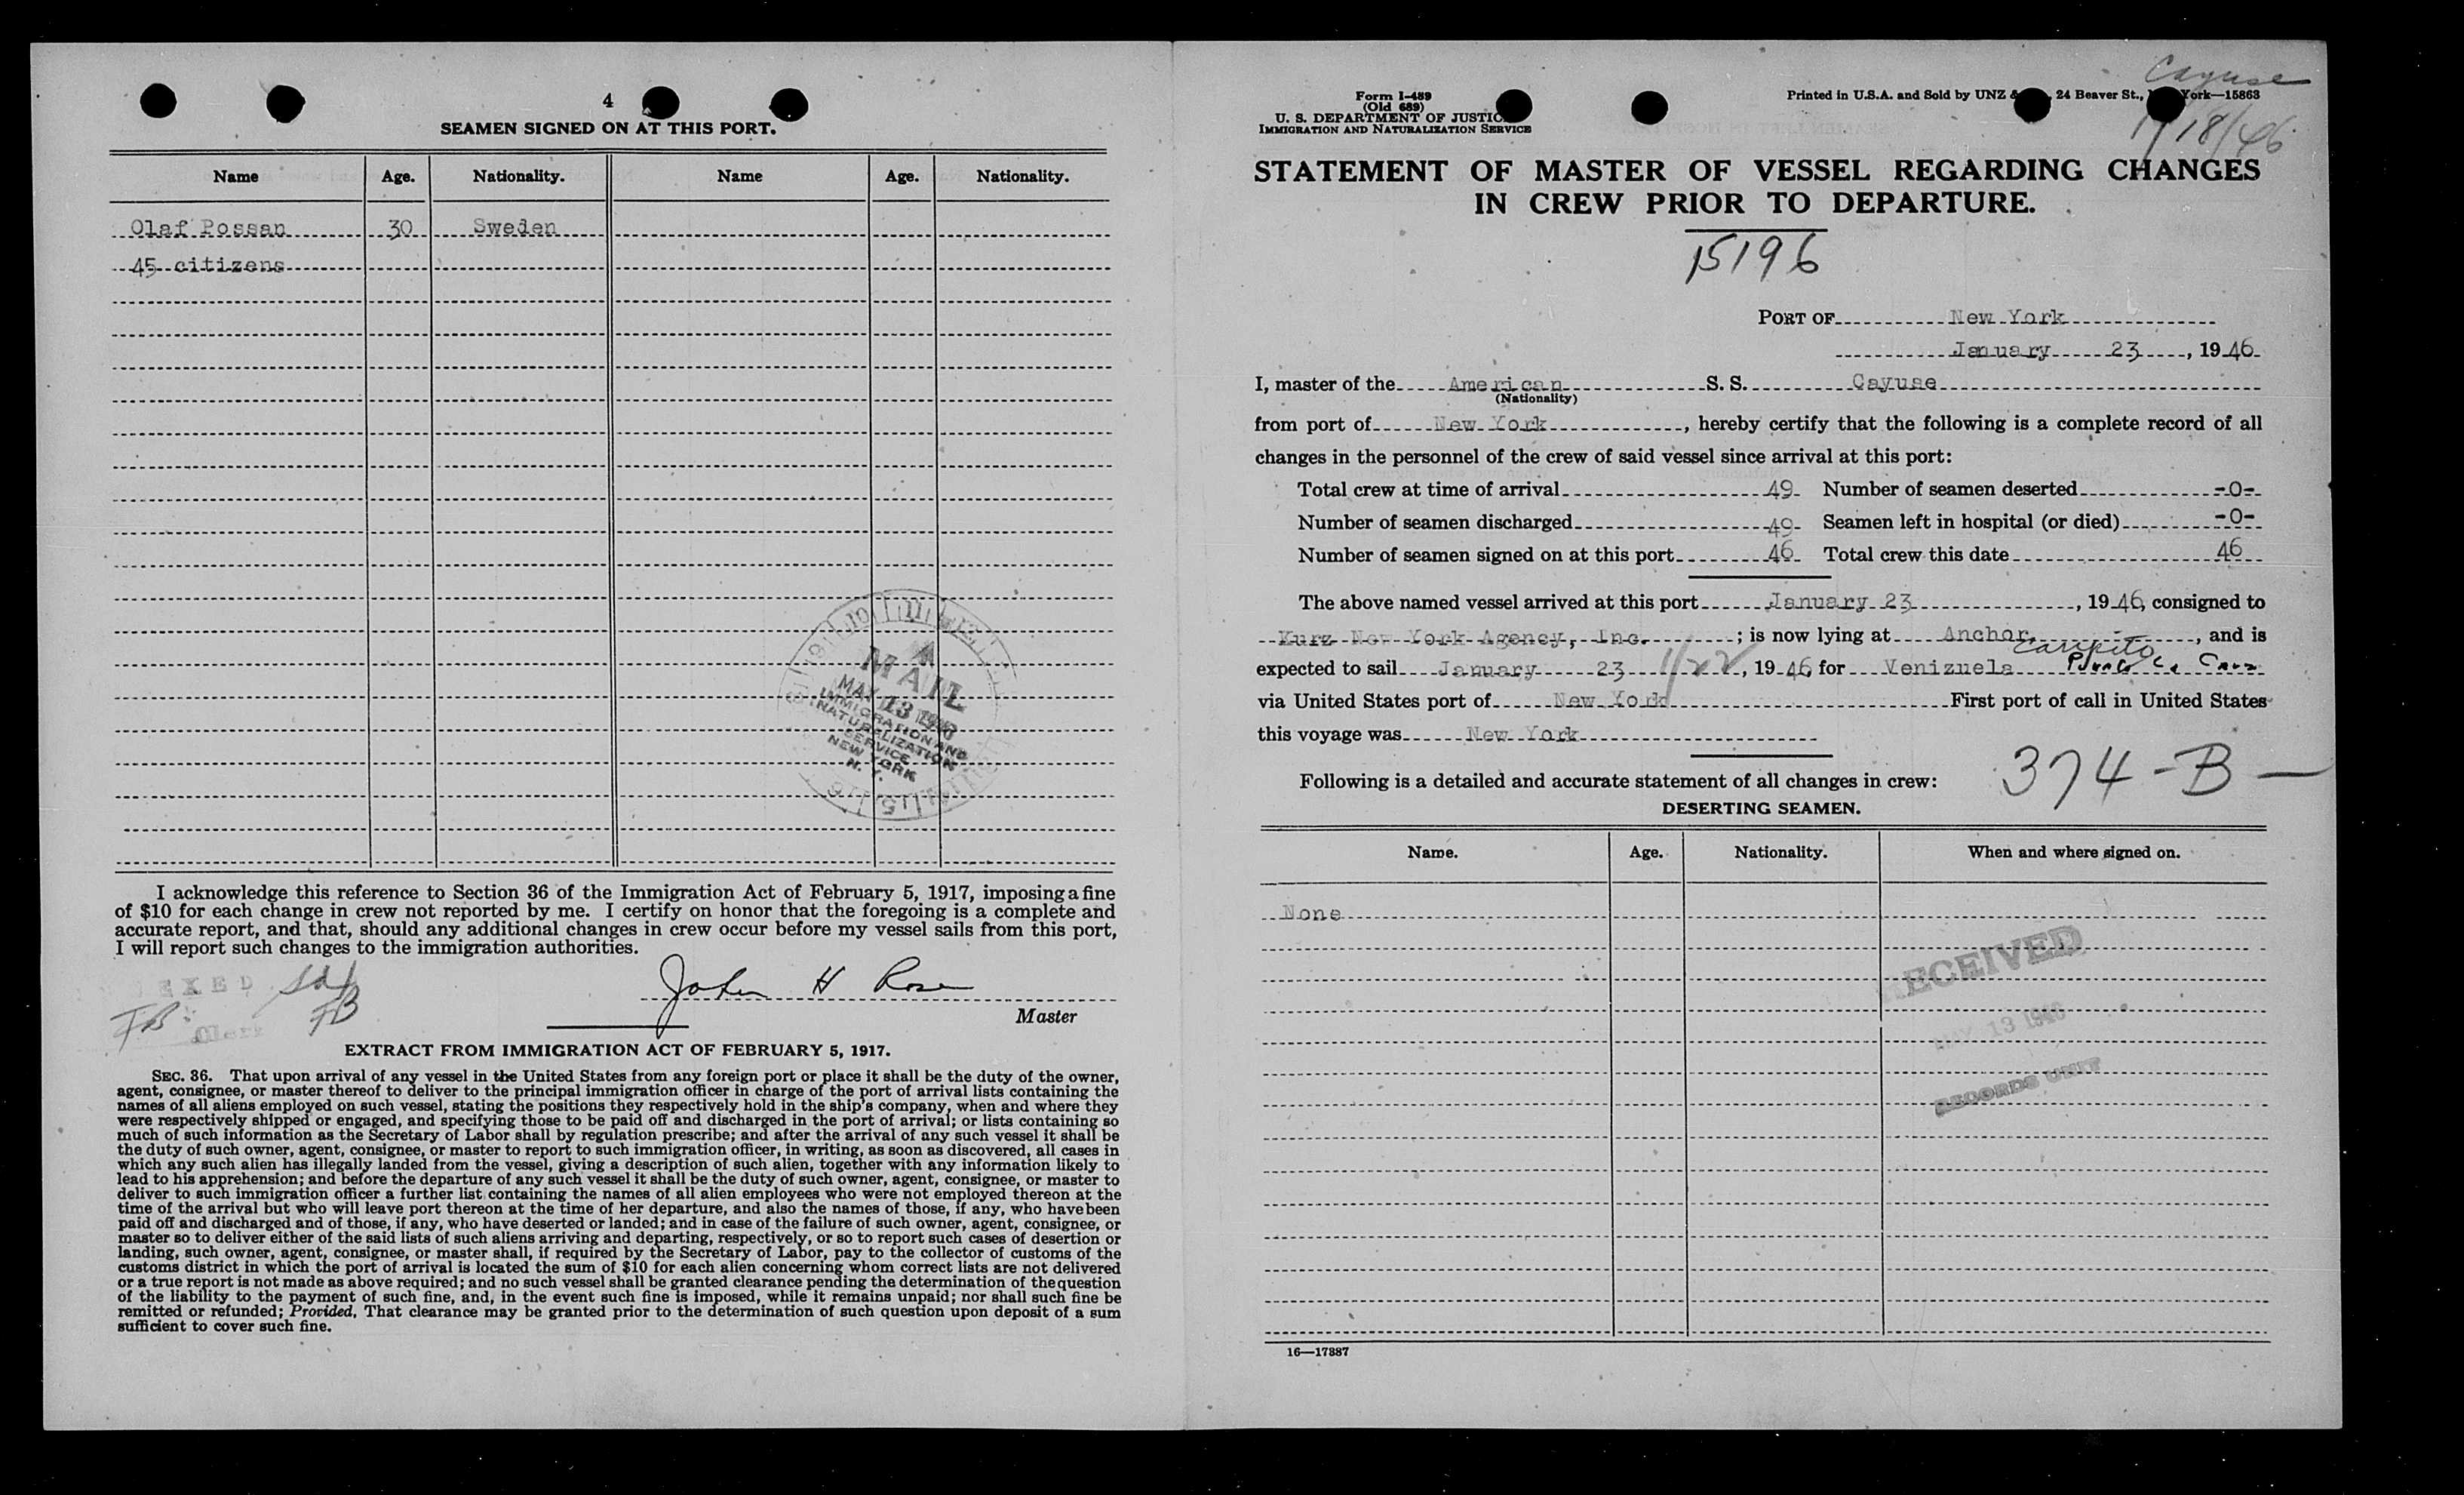 4
SEAMEN SIGNED ON AT THIS PORT.
Name Age. Nationality. Name Age. Nationality.
Olaf Possan 30 Sweden
45 citizens
MAIL
MAY 13
IMMIGRATION AND
NATURALIZATION
SERVICE
NEW YORK
N. Y.
I acknowledge this reference to Section 36 of the Immigration Act of February 5, 1917, imposing a fine
of $10 for each change in crew not reported by me. I certify on honor that the foregoing is a complete and
accurate report, and that, should any additional changes in crew occur before my vessel sails from this port,
I will report such changes to the immigration authorities.
John H Rose
Master
FB
Clerk
FB
EXTRACT FROM IMMIGRATION ACT OF FEBRUARY 5, 1917.
SEC. 36. That upon arrival of any vessel in the United States from any foreign port or place it shall be the duty of the owner,
agent, consignee, or master thereof to deliver to the principal immigration officer in charge of the port of arrival lists containing the
names of all aliens employed on such vessel, stating the positions they respectively hold in the ship's company, when and where they
were respectively shipped or engaged, and specifying those to be paid off and discharged in the port of arrival; or lists containing so
much of such information as the Secretary of Labor shall by regulation prescribe; and after the arrival of any such vessel it shall be
the duty of such owner, agent, consignee, or master to report to such immigration officer, in writing, as soon as discovered, all cases in
which any such alien has illegally landed from the vessel, giving a description of such alien, together with any information likely to
lead to his apprehension; and before the departure of any such vessel it shall be the duty of such owner, agent, consignee, or master to
deliver to such immigration officer a further list containing the names of all alien employees who were not employed thereon at the
time of the arrival but who will leave port thereon at the time of her departure, and also the names of those, if any, who have been
paid off and discharged and of those, if any, who have deserted or landed; and in case of the failure of such owner, agent, consignee, or
master so to deliver either of the said lists of such aliens arriving and departing, respectively, or so to report such cases of desertion or
landing, such owner, agent, consignee, or master shall, if required by the Secretary of Labor, pay to the collector of customs of the
customs district in which the port of arrival is located the sum of $10 for each alien concerning whom correct lists are not delivered
or a true report is not made as above required; and no such vessel shall be granted clearance pending the determination of the question
of the liability to the payment of such fine, and, in the event such fine is imposed, while it remains unpaid; nor shall such fine be
remitted or refunded; Provided, That clearance may be granted prior to the determination of such question upon deposit of a sum
sufficient to cover such fine.
Cayuse
1/18/46
Form I-489
(Old 689)
U. S. DEPARTMENT OF JUSTICE
IMMIGRATION AND NATURALIZATION SERVICE
Printed in U.S.A. and Sold by UNZ & 24 Beaver St., York—15863
STATEMENT OF MASTER OF VESSEL REGARDING CHANGES
IN CREW PRIOR TO DEPARTURE.
15196
PORT OF New York
January 23, 1946
I, master of the American S. S. Cayuse
(Nationality)
from port of New York, hereby certify that the following is a complete record of all
changes in the personnel of the crew of said vessel since arrival at this port:
Total crew at time of arrival 49 Number of seamen deserted -0-
Number of seamen discharged 49 Seamen left in hospital (or died) -0-
Number of seamen signed on at this port 46 Total crew this date 46
The above named vessel arrived at this port January 23, 1946, consigned to
Kurz New York Agency, Inc. ; is now lying at Anchor, and is
Caripito
expected to sail January 23 1/22, 1946 for Venizuela Puerto La Cruz
via United States port of New York First port of call in United States
this voyage was New York
374-B-
Following is a detailed and accurate statement of all changes in crew:
DESERTING SEAMEN.
Name. Age. Nationality. When and where signed on.
None
RECEIVED
MAY 13 1946
RECORDS UNIT
16—17887